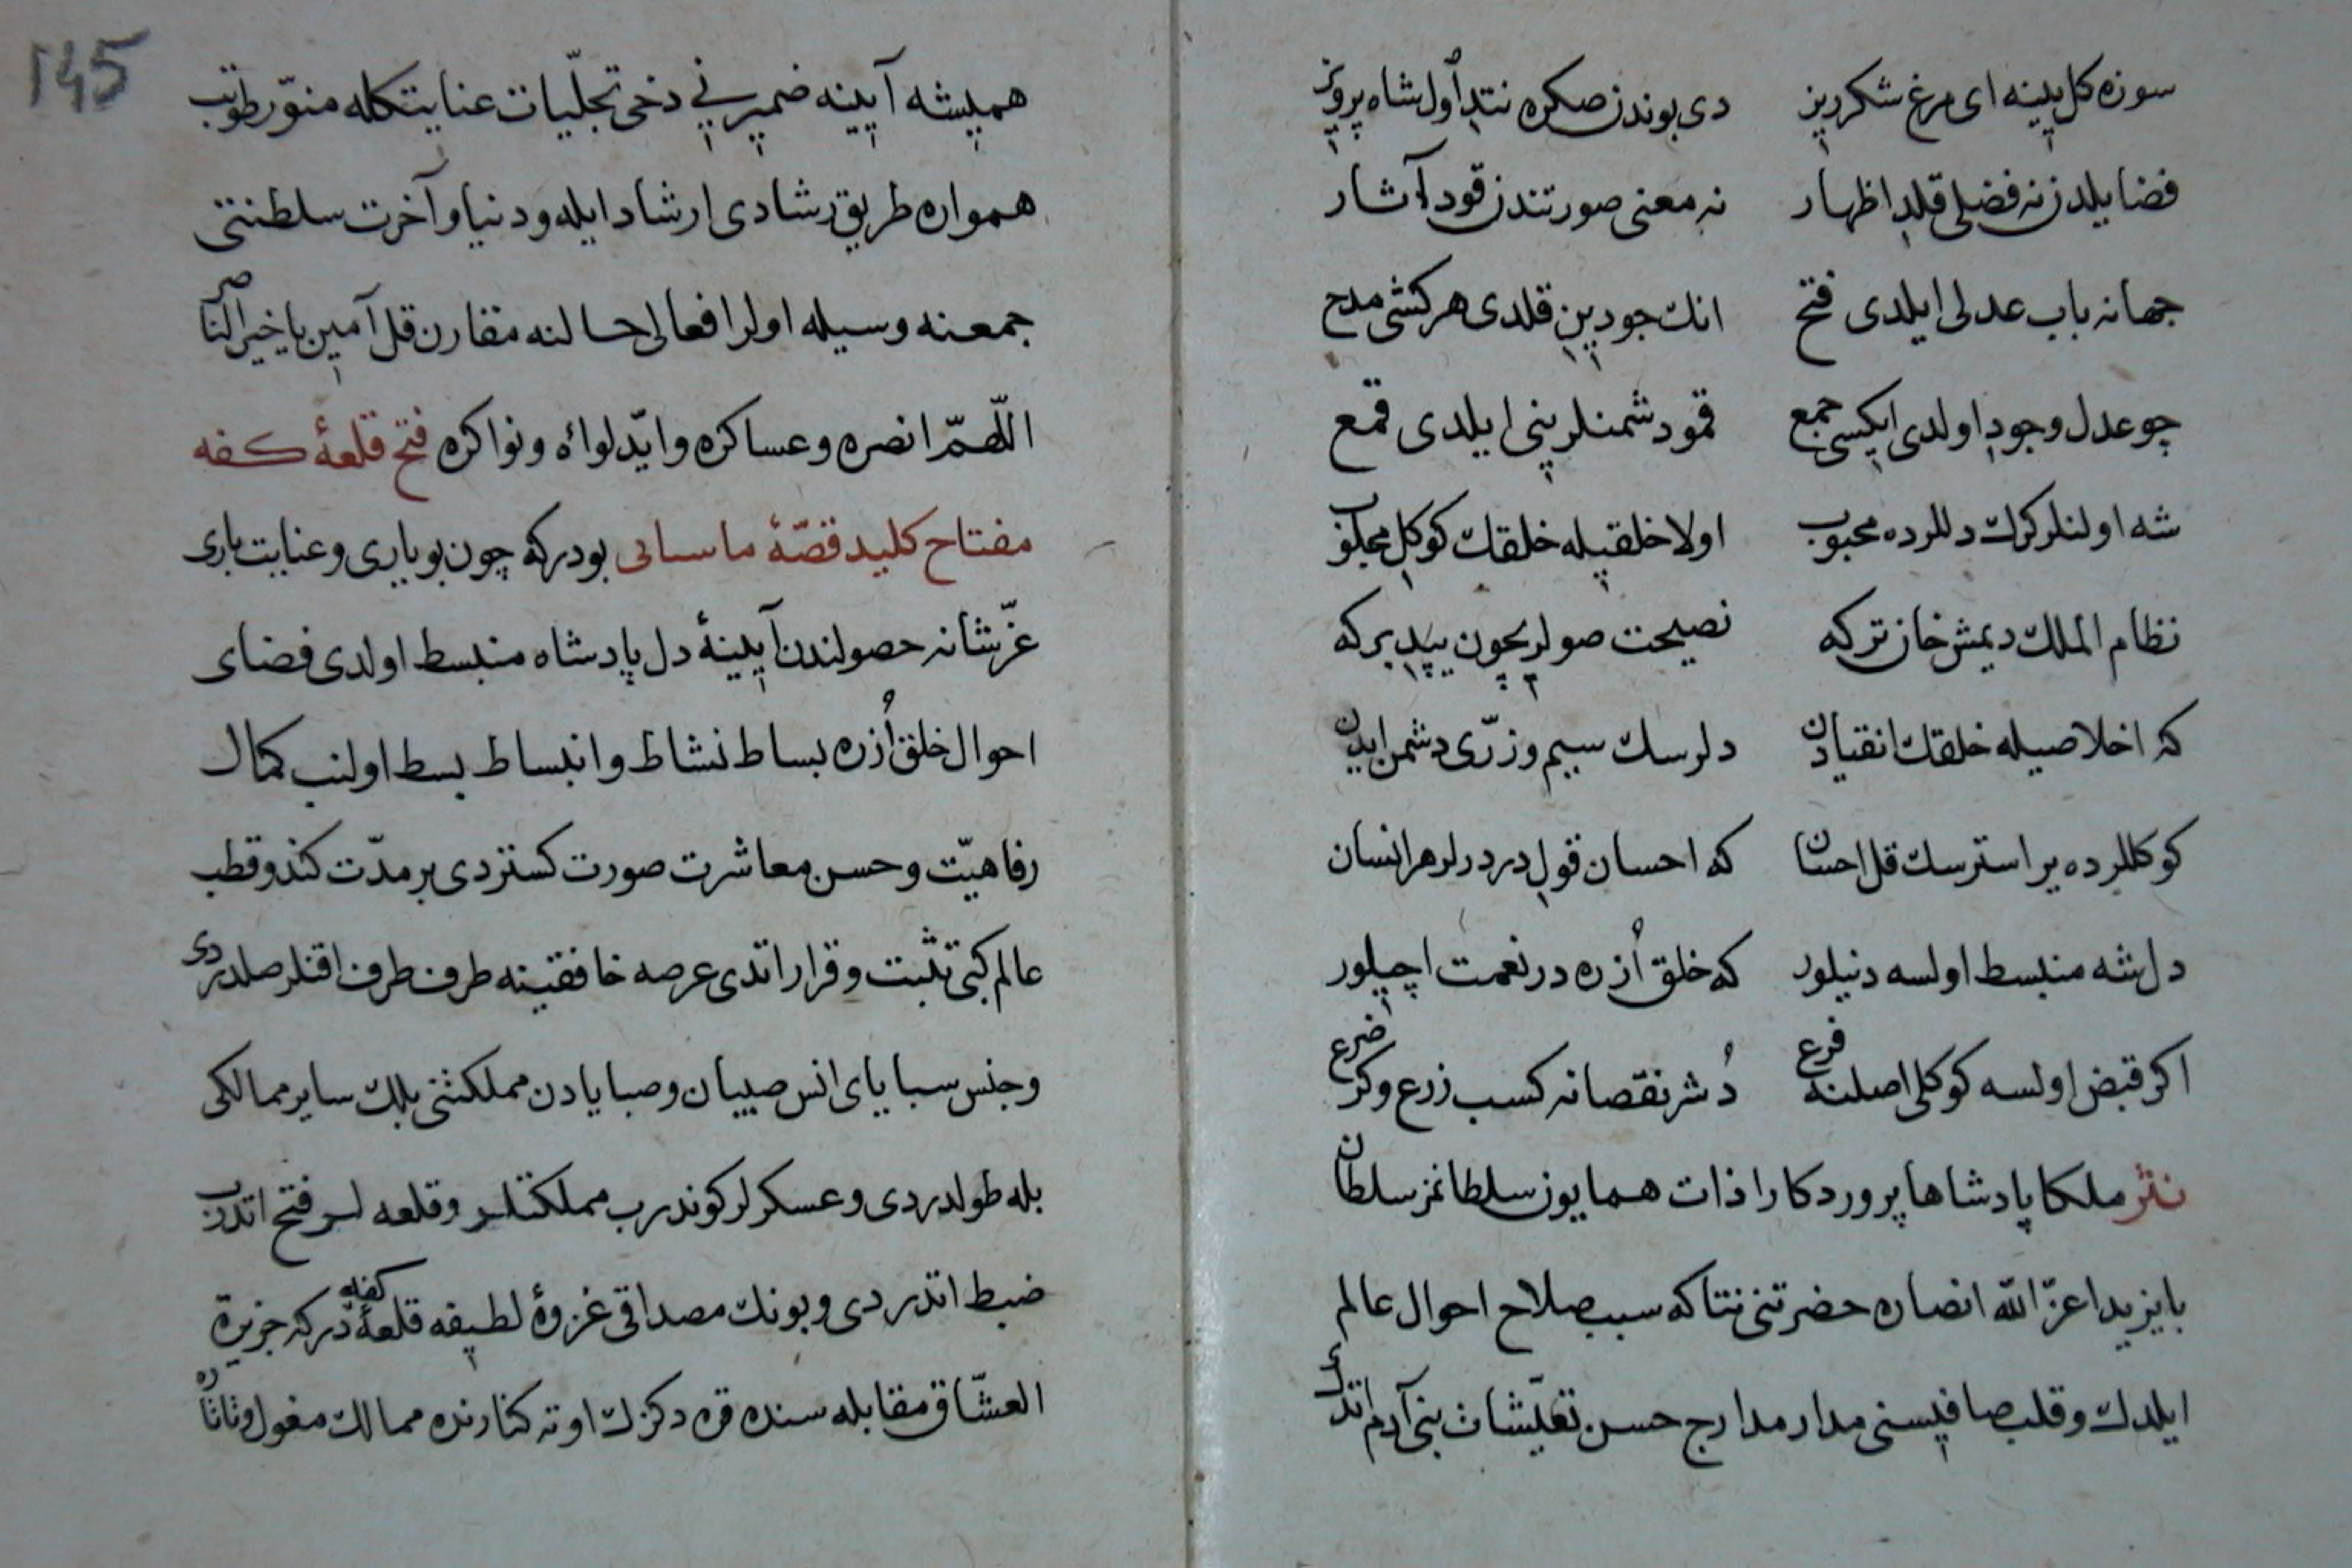 سوزه كل يينه اى مرغ شكرريز دى بوندن صكره نتدى اول شاه پرويز
فضايلدن نه فضلى قلدى اظهار نه معنى صورتندن قودى آثار
جهانه باب عدلى ايلدى فتح انك جودين قلدى هركشى مدح
چو عدل وجود اولدى ايكسى جمع قمو دشمنلرينى ايلدى قمع
شه اولنلر كرك دللرده محبوب اولا خلقيله خلقك كوكلى مجلوب
نظام الملك ديمش خان تركه نصيحت صولريچون ييديركه
كه اخلاصيله خلقك انقيادن دلرسك سيم وزرى دشمن ايدن
كوكللرده ير استرسك قل احسان كه احسان قولى درديرلر هر انسان
دل شه منبسط اولسه دنيلور كه خلق اُزره در نعمت اچيلور
اكر قبض اولسه كوكلى اصلنه فرع دُشر نقصانه كسب زرع وكر ضرع
نثر ملكا پادشاها پروردكارا ذات همايون سلطانمز سلطان
بايزيد اعزّ الله انصاره حضرتنى نتاكه سبب صلاح احوال عالم
ايلدك وقلب صافيسنى مدار مدارج حسن تعيّشات بنى آدم اتدك
145
هميشه آيينه ضميرنى دخى تجلّيات عنايتكله منوّر طوتب
همواره طريق رشادى ارشاد ايله ودنيا وآخرت سلطنتى
جمعنه وسيله اولر افعالى حالنه مقارن قل آمين يا خير الناصر
اللّهمّ انصره وعساكره وايّد لواءه ونواكره فتح قلعۀ كفه
مفتاح كليد قصّۀ ماسبابى بودركه چون بويارى وعنايت بارى
عزّ شانه حصولندن آيينۀ دل پادشاه منبسط اولدى فضاى
احوال خلق اُزره بساط نشاط وانبساط بسط اولنب كمال
رفاهيّت وحسن معاشرت صورت كستردى بر مدّت كندو قطب
عالم كبى تثبت وقرار اتدى عرصه خافقينه طرف طرف اقنلر صلدردى
وجنس سباياى انس صبيان وصبايادن مملكتنى بلك ساير ممالكى
بله طولدردى وعسكرلر كوندرب مملكتلر وقلعه لر فتح اتدرب
ضبط اتدردى وبونك مصداقى غزوۀ لطيفه قلعۀ كفه دركه جزيرة
العشّاق مقابله سنده قره دكزك اوته كنارنده ممالك مغول وتاتاره